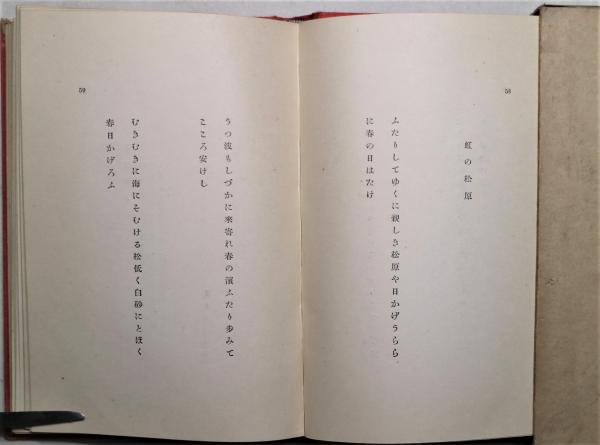 58
虹の松原
ふたりしてゆくに親しき松原や日かげうらら
に春の日はたけ
うつ波もしづかに来寄れ春の濱ふたり歩みて
こころ安けし
むきむきに海にそむける松低く白砂にとほく
春日かげろふ
59